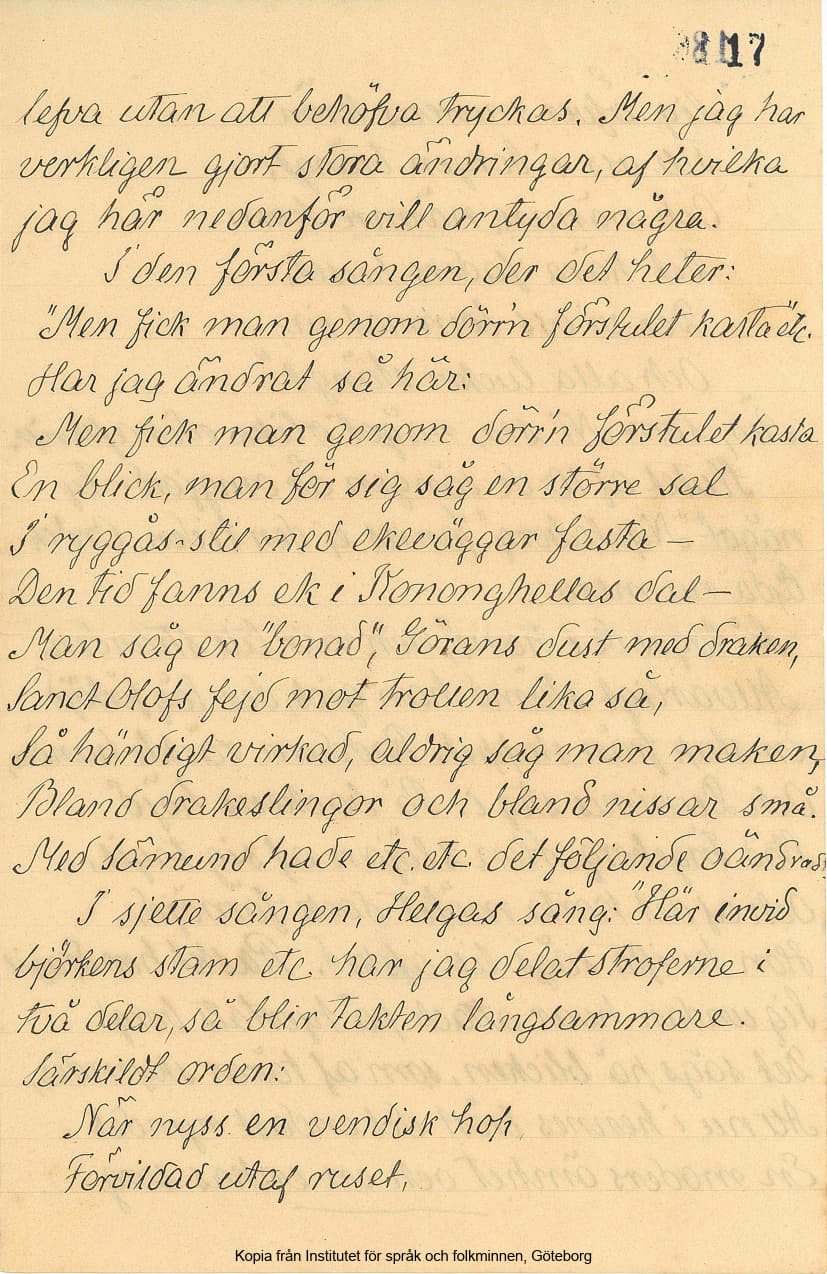 17
lefva utan att behöfva tryckas. Men jag har
verkligen gjort stora ändringar, af hvilka
jag här nedanför vill antyda några.
I den första sången, der det heter:
"Men fick man genom dörr'n förstulet kasta" etc.
Har jag ändrat så här:
Men fick man genom dörr'n förstulet kasta
En blick, man för sig såg en större sal
I ryggås-stil med ekeväggar fasta —
Den tid fanns ek i Kononghellas dal —
Man såg en "bonad", Görans dust med draken,
Sanct Olofs fejd mot trollen lika så,
Så händigt virkad, aldrig såg man maken,
Bland drakeslingor och bland nissar små.
Med Sämund hade etc. etc. det följande oändradt
I sjette sången, Helgas sång: "Här invid
björkens stam etc. har jag delat stroferne i
två delar, så blir takten långsammare.
Särskildt orden:
När nyss en vendisk hop
Förvildad utaf ruset,
Kopia från Institutet för språk och folkminnen, Göteborg